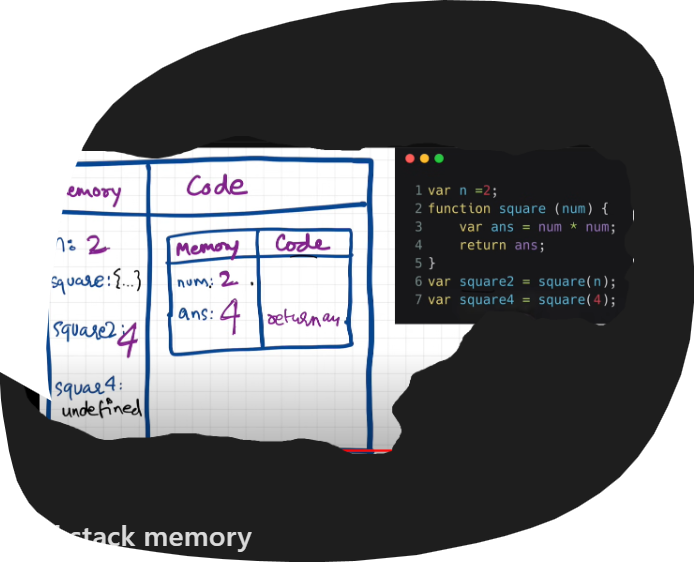 emory Code
n: 2
square: {...}
square2: 4
squar4:
undefined
Memory Code
num: 2
ans: 4
1 var n =2;
2 function square (num) {
3 var ans = num * num;
4 return ans;
5 }
6 var square2 = square(n);
7 var square4 = square(4);
stack memory